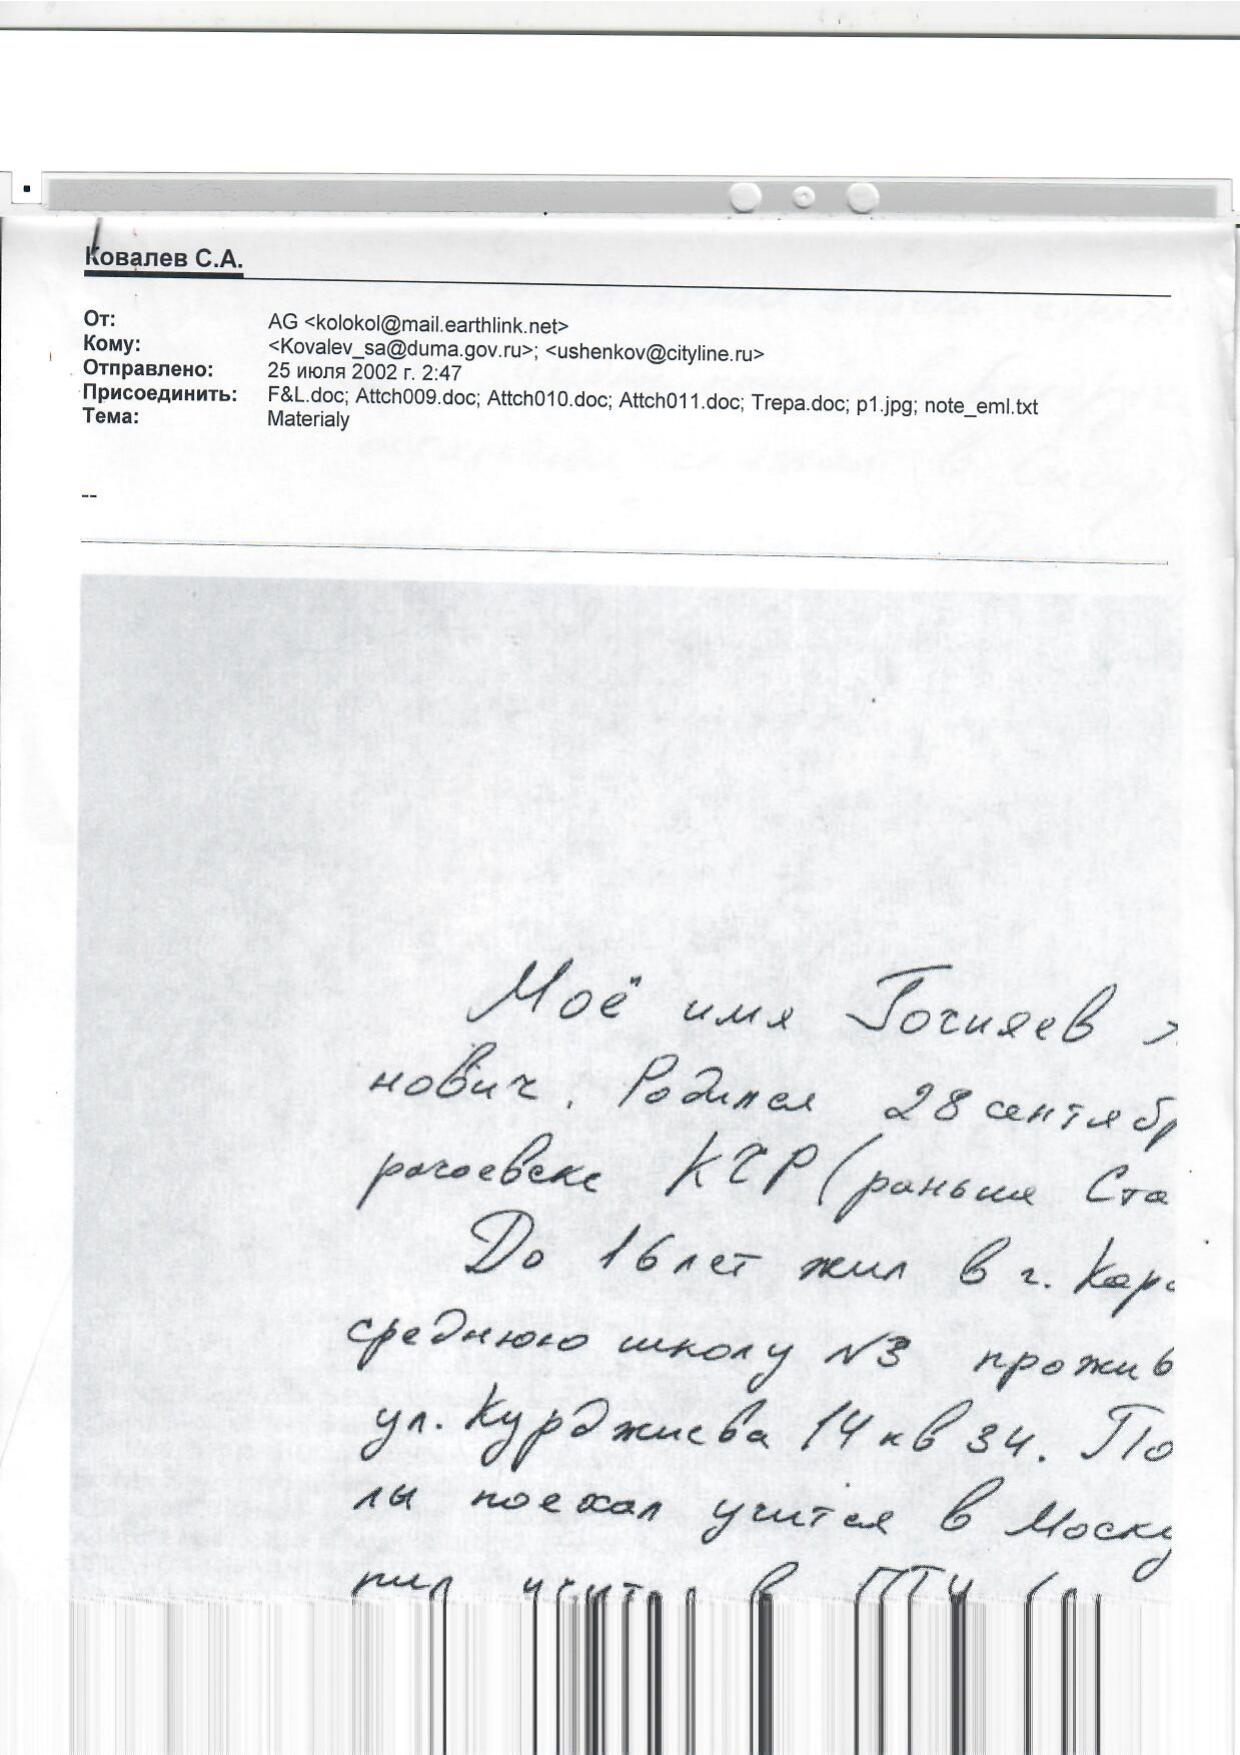 Ковалев С.А.
От: AG <kolokol@mail.earthlink.net>
Кому: <Kovalev_sa@duma.gov.ru>; <ushenkov@cityline.ru>
Отправлено: 25 июля 2002 г. 2:47
Присоединить: F&L.doc; Attch009.doc; Attch010.doc; Attch011.doc; Trepa.doc; p1.jpg; note_eml.txt
Тема: Materialy
--
Моё имя Гочияев
нович. Родился 28 сентябр
рачаевске КЧР (раньше Ста
До 16 лет жил в г. Кара
среднюю школу №3 прожив
ул. Курджиева 14 кв 34. По
лы поехал учится в Моску
пил учится в ПТУ